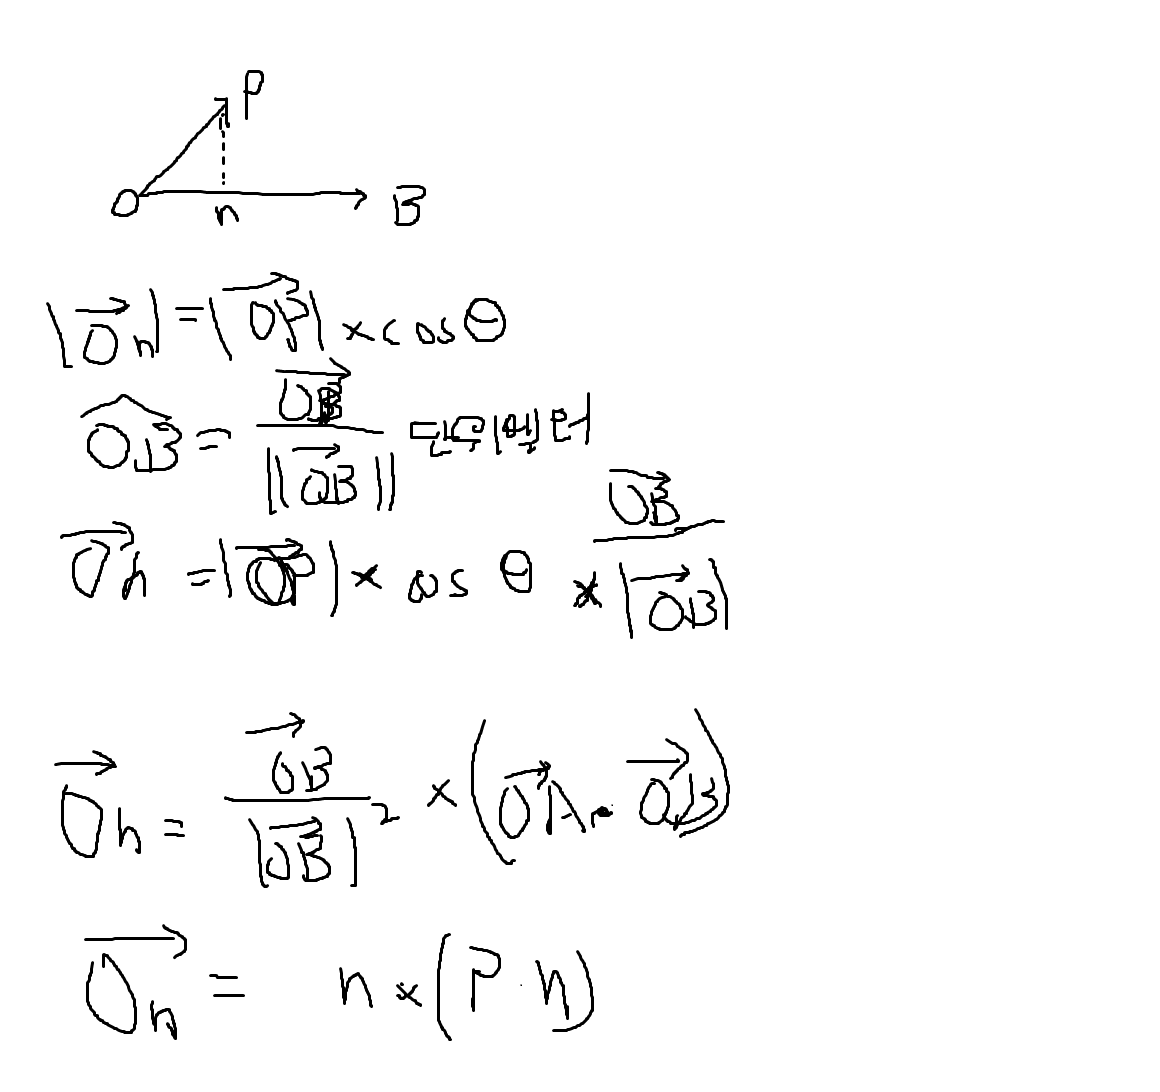 P
O n B
|On| = |OP| × cos θ
OB = OB / ||OB|| 단위벡터
Oh = |OP| × cos θ × OB / |OB|
Oh = OB / |OB|² × (OA · OB)
On = n × (P · n)